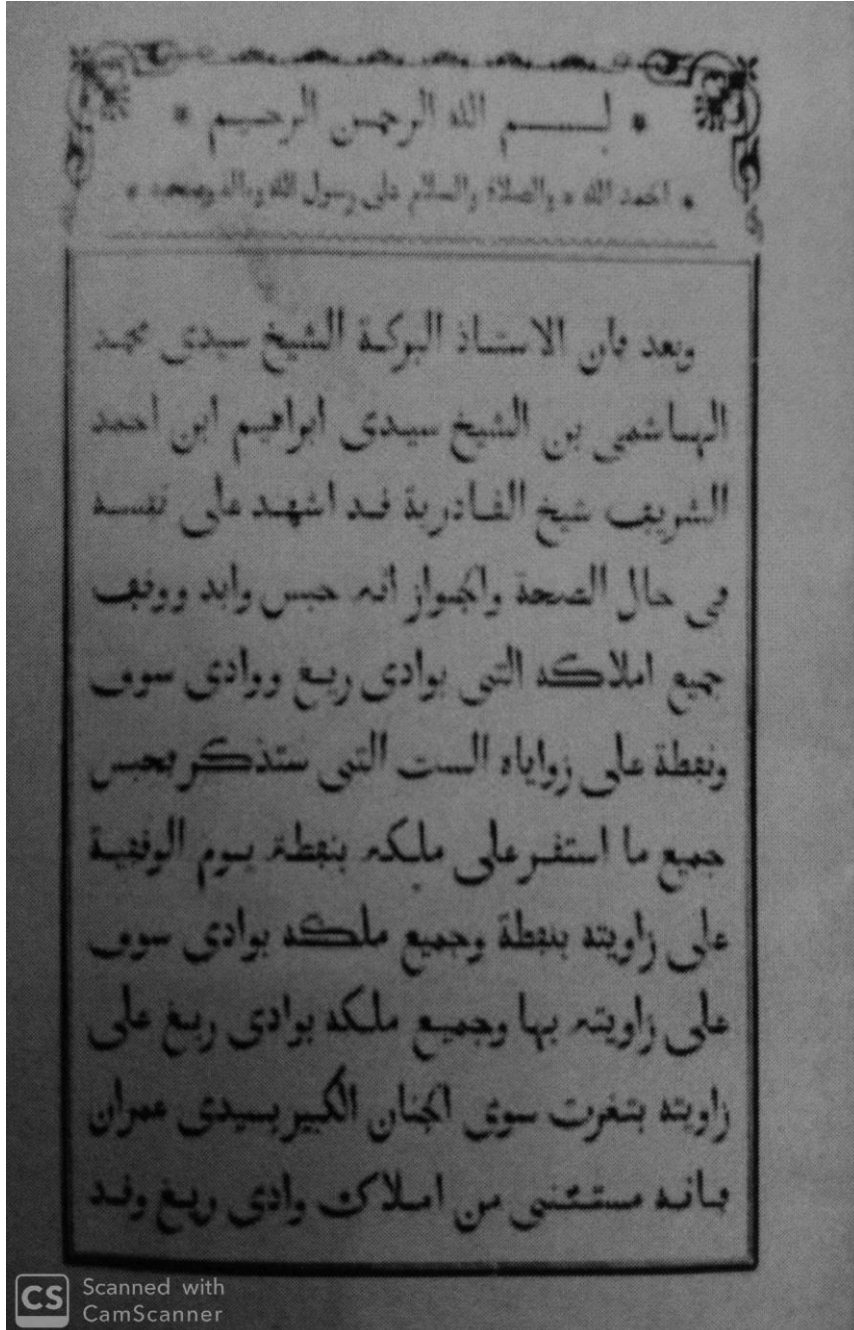 * بسم الله الرحمن الرحيم *
* الحمد لله * والصلاة والسلام على رسول الله وءاله وصحبه *
وبعد ڢان الاستاذ البركة الشيخ سيدي محمد
الهاشمي بن الشيخ سيدى ابراهيم ابن احمد
الشريڢ شيخ الڧادرية ڧد اشهد على نڢسه
ڢي حال الصحة والجواز انه حبس وابد ووڧڢ
جميع املاكه التي بوادى ريغ ووادى سوڢ
ونڢطة على زواياه الست التي ستذكر ڢحبس
جميع ما استڧر على ملكه بنڢطة يوم الوڧڢية
على زاويته بنڢطة وجميع ملكه بوادى سوڢ
على زاويته بها وجميع ملكه بوادى ريغ على
زاويته بتغرت سوى الجنان الكبير بسيدى عمران
ڢانه مستثنى من املاك وادى ريغ وڧد
CS Scanned with
CamScanner